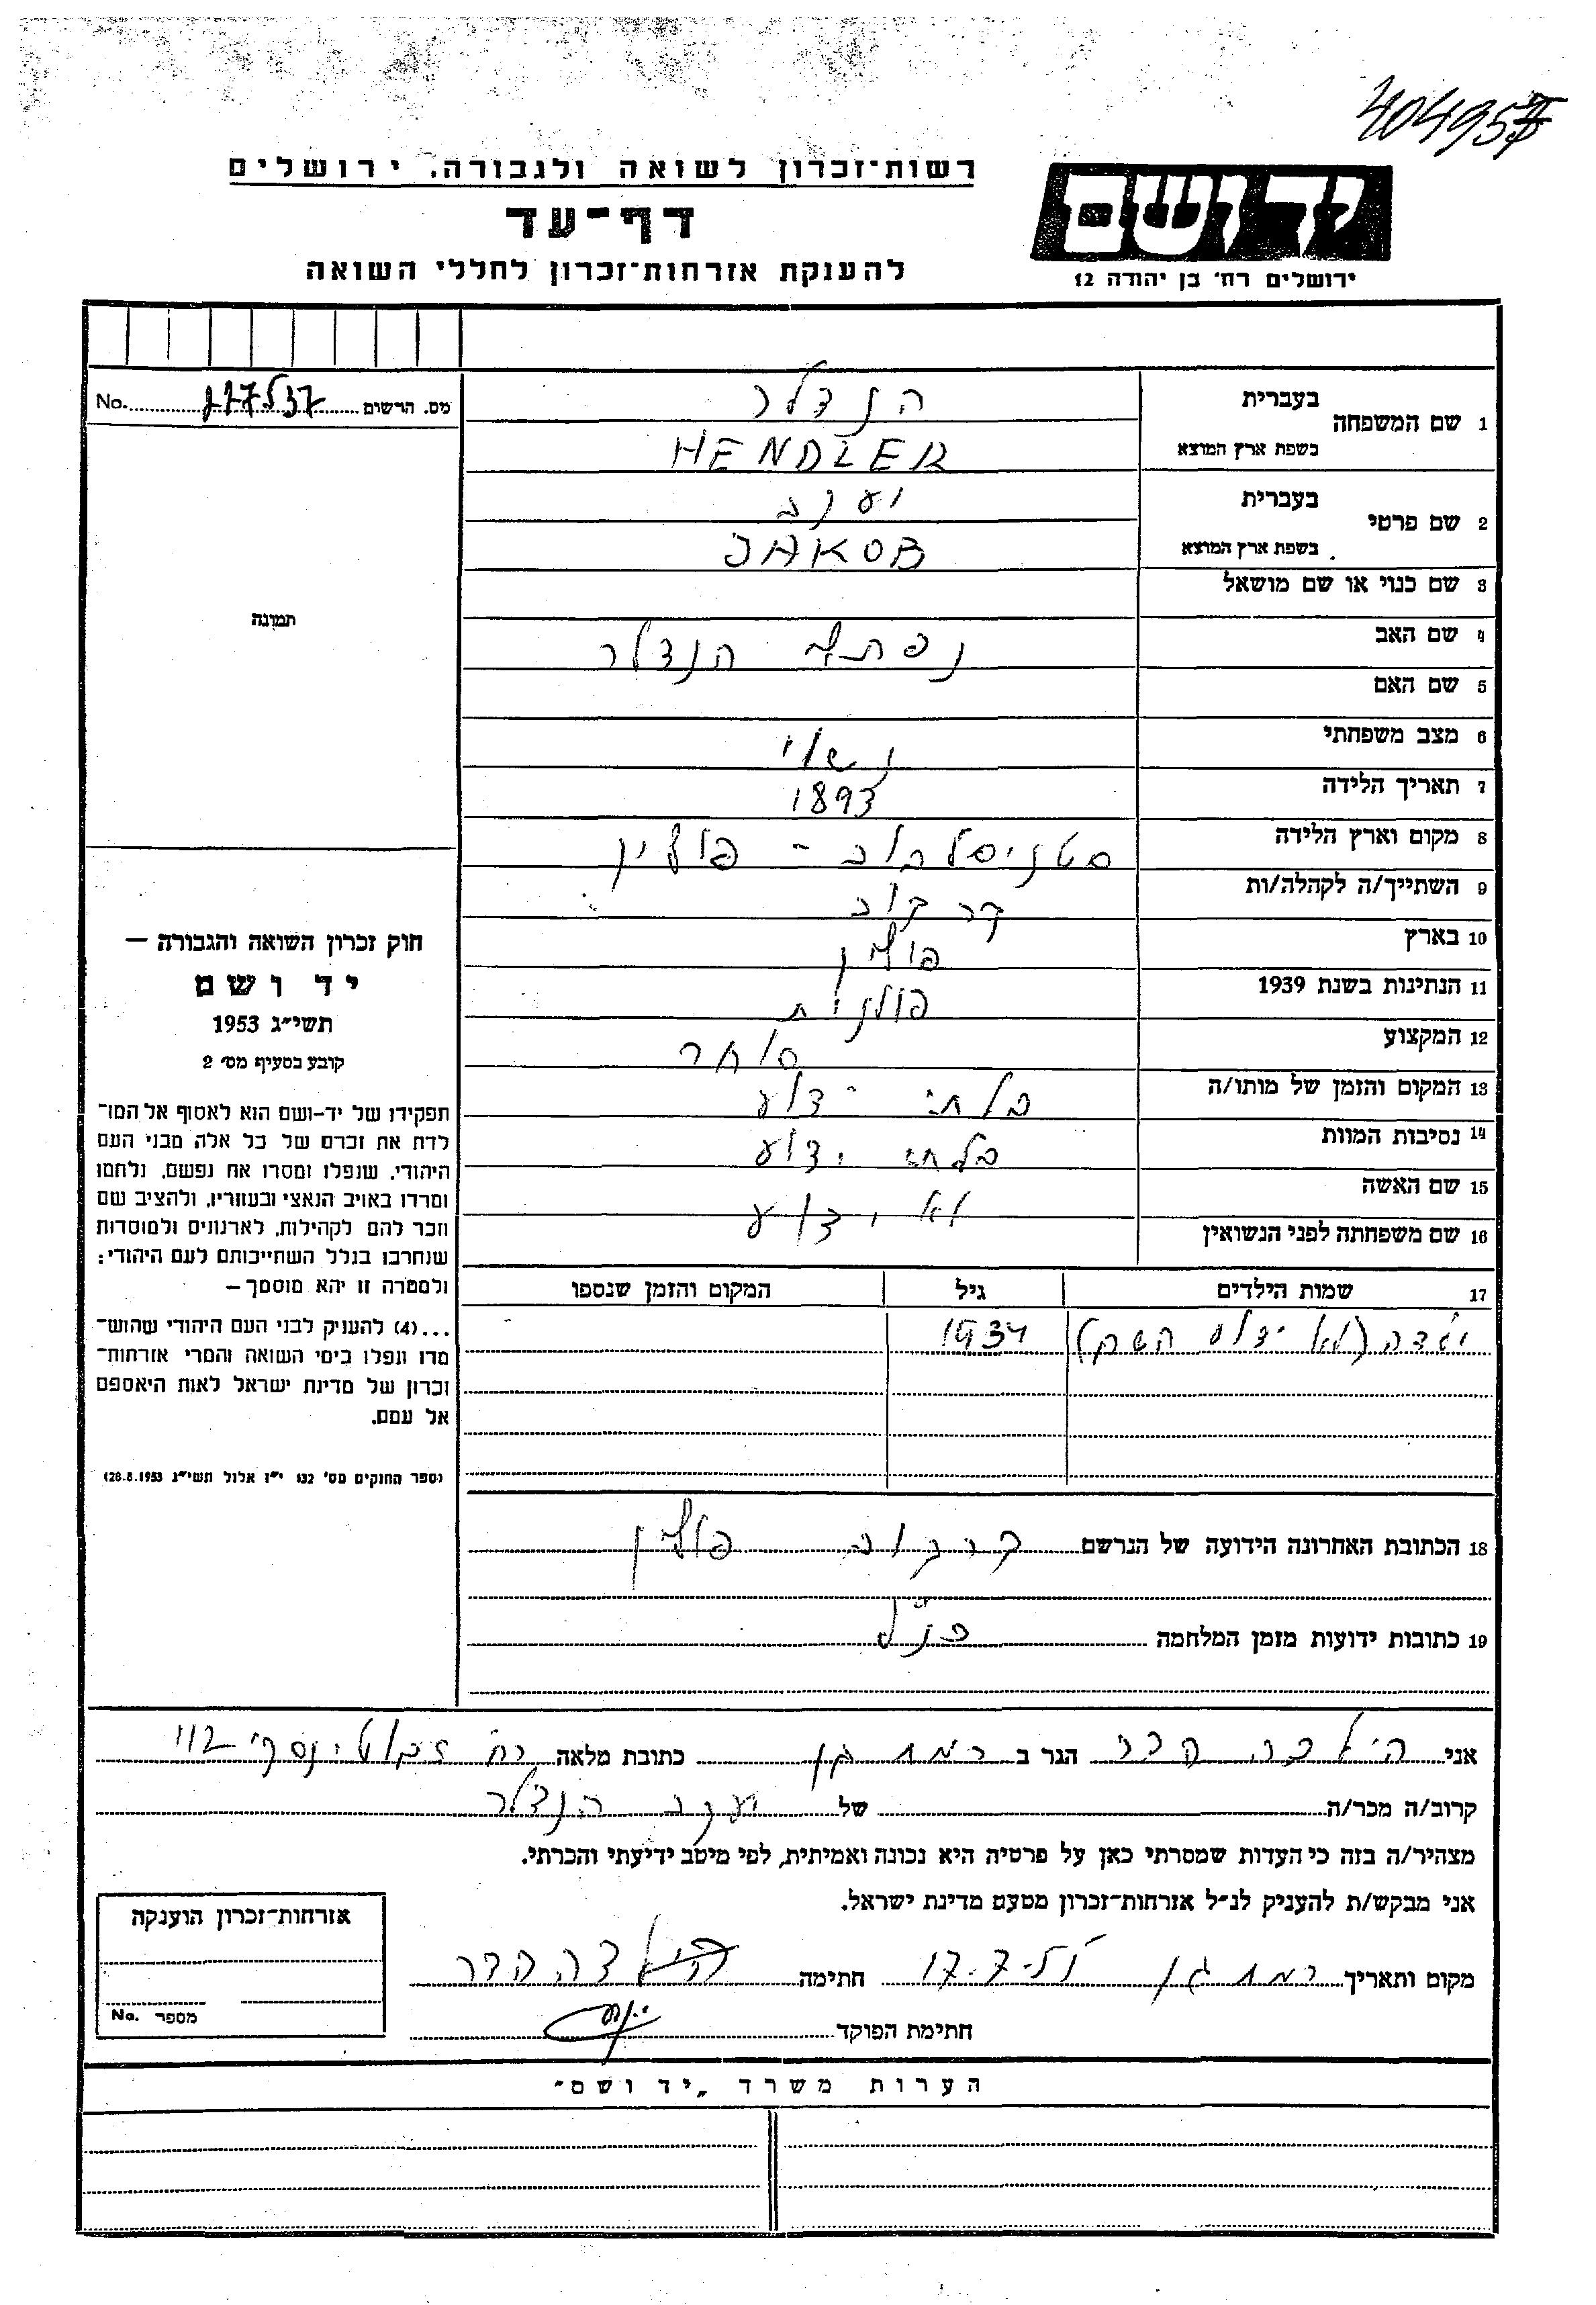 רשות־זכרון לשואה ולגבורה. ירושלים
דף־עד
להענקת אזרחות־זכרון לחללי השואה
יד ושם
ירושלים רח׳ בן יהודה 12
מס. הרשום No.
1 שם המשפחה בעברית הנדלר
בשפת ארץ המוצא HENDLER
2 שם פרטי בעברית יעקב
בשפת ארץ המוצא JAKOB
3 שם כנוי או שם מושאל
4 שם האב נפתלי הנדלר
5 שם האם
6 מצב משפחתי נשוי
7 תאריך הלידה 1893
8 מקום וארץ הלידה סטניסלבוב - פולין
9 השתייך/ה לקהלה/ות קרקוב
10 בארץ פולין
11 הנתינות בשנת 1939 פולנית
12 המקצוע סוחר
13 המקום והזמן של מותו/ה בלתי ידוע
14 נסיבות המוות בלתי ידוע
15 שם האשה לא ידוע
16 שם משפחתה לפני הנשואין
17 שמות הילדים גיל המקום והזמן שנספו
ילדה (לא ידוע השם) 1934
18 הכתובת האחרונה הידועה של הנרשם קרקוב פולין
19 כתובות ידועות מזמן המלחמה כנ"ל
תמונה
חוק זכרון השואה והגבורה —
יד ושם
תשי״ג 1953
קובע בסעיף מס׳ 2
תפקידו של יד-ושם הוא לאסוף אל המו־
לדת את זכרם של כל אלה מבני העם
היהודי, שנפלו ומסרו את נפשם, נלחמו
ומרדו באויב הנאצי ובעוזריו, ולהציב שם
וזכר להם לקהילות, לארגונים ולמוסדות
שנחרבו בגלל השתייכותם לעם היהודי:
ולמטרה זו יהא מוסמך —
...(4) להעניק לבני העם היהודי שהוש־
מדו ונפלו בימי השואה והמרי אזרחות־
זכרון של מדינת ישראל לאות היאספם
אל עמם.
(ספר החוקים מס׳ 132 י״ז אלול תשי״ג 28.8.1953)
אני הילדה הדר הגר ב רמת גן כתובת מלאה רח' ז'בוטינסקי 112
קרוב/ה מכר/ה של יעקב הנדלר
מצהיר/ה בזה כי העדות שמסרתי כאן על פרטיה היא נכונה ואמיתית, לפי מיטב ידיעתי והכרתי.
אני מבקש/ת להעניק לנ״ל אזרחות־זכרון מטעם מדינת ישראל.
מקום ותאריך רמת גן 17.7. חתימה הילדה הדר
חתימת הפוקד
אזרחות־זכרון הוענקה
מספר No.
הערות משרד „יד ושם״